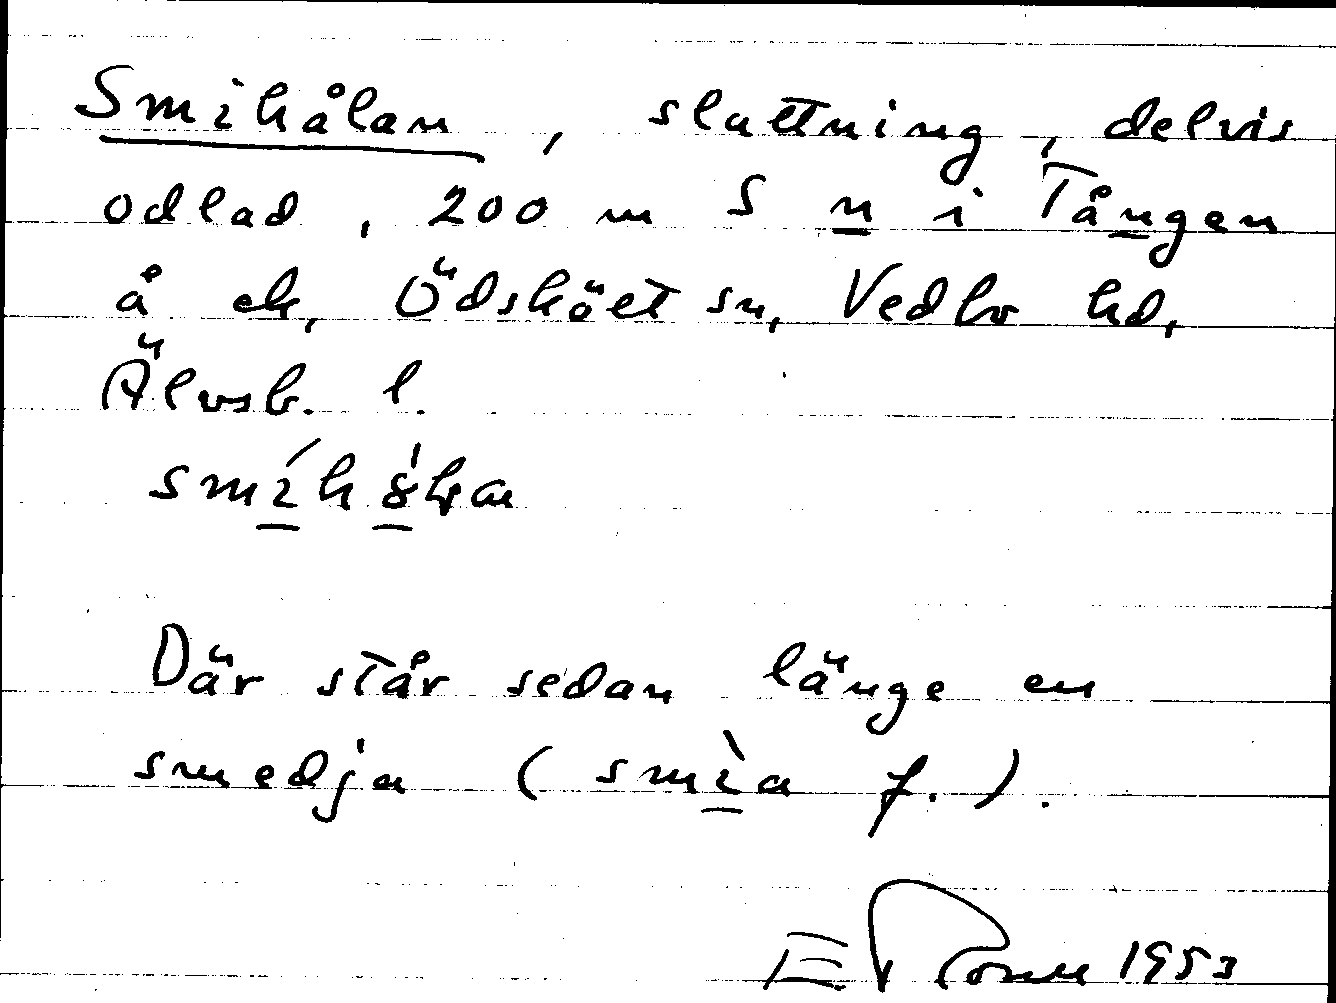 Smihålan, sluttning, delvis
odlad, 200 m S n i Tången
å ek, Ödsköelt sn, Vedbo hd,
Älvsb. l.
Där står sedan länge en
smedja (smìa f.).
1953